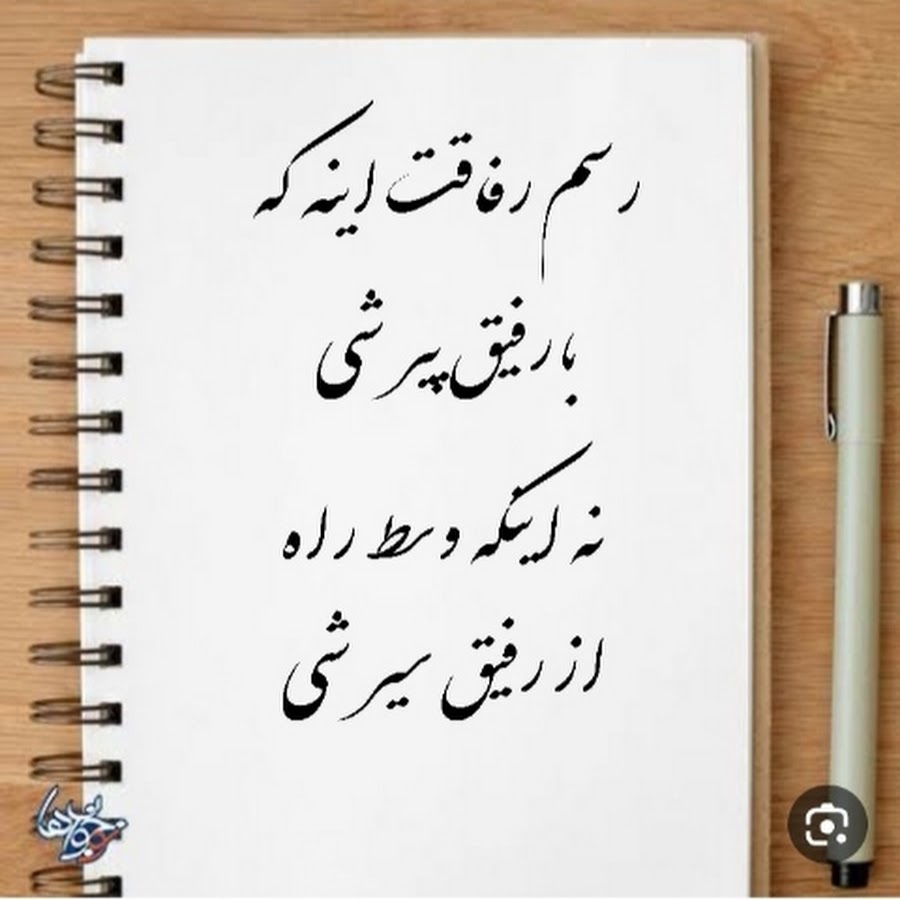 رسم رفاقت اینه که
با رفیق پیر شی
نه اینکه وسط راه
از رفیق سیر شی